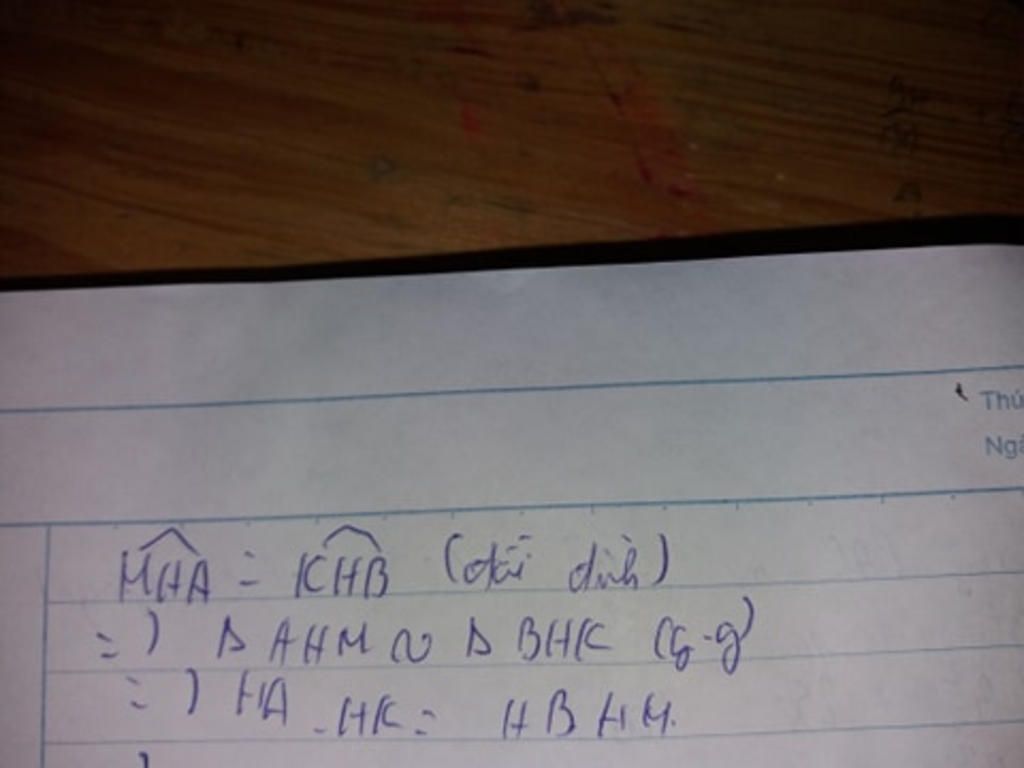 Thứ
Ngà
MHA = KHB (đối đỉnh)
=) Δ AHM ∽ Δ BHK (g-g)
=) HA . HK = HB HM.